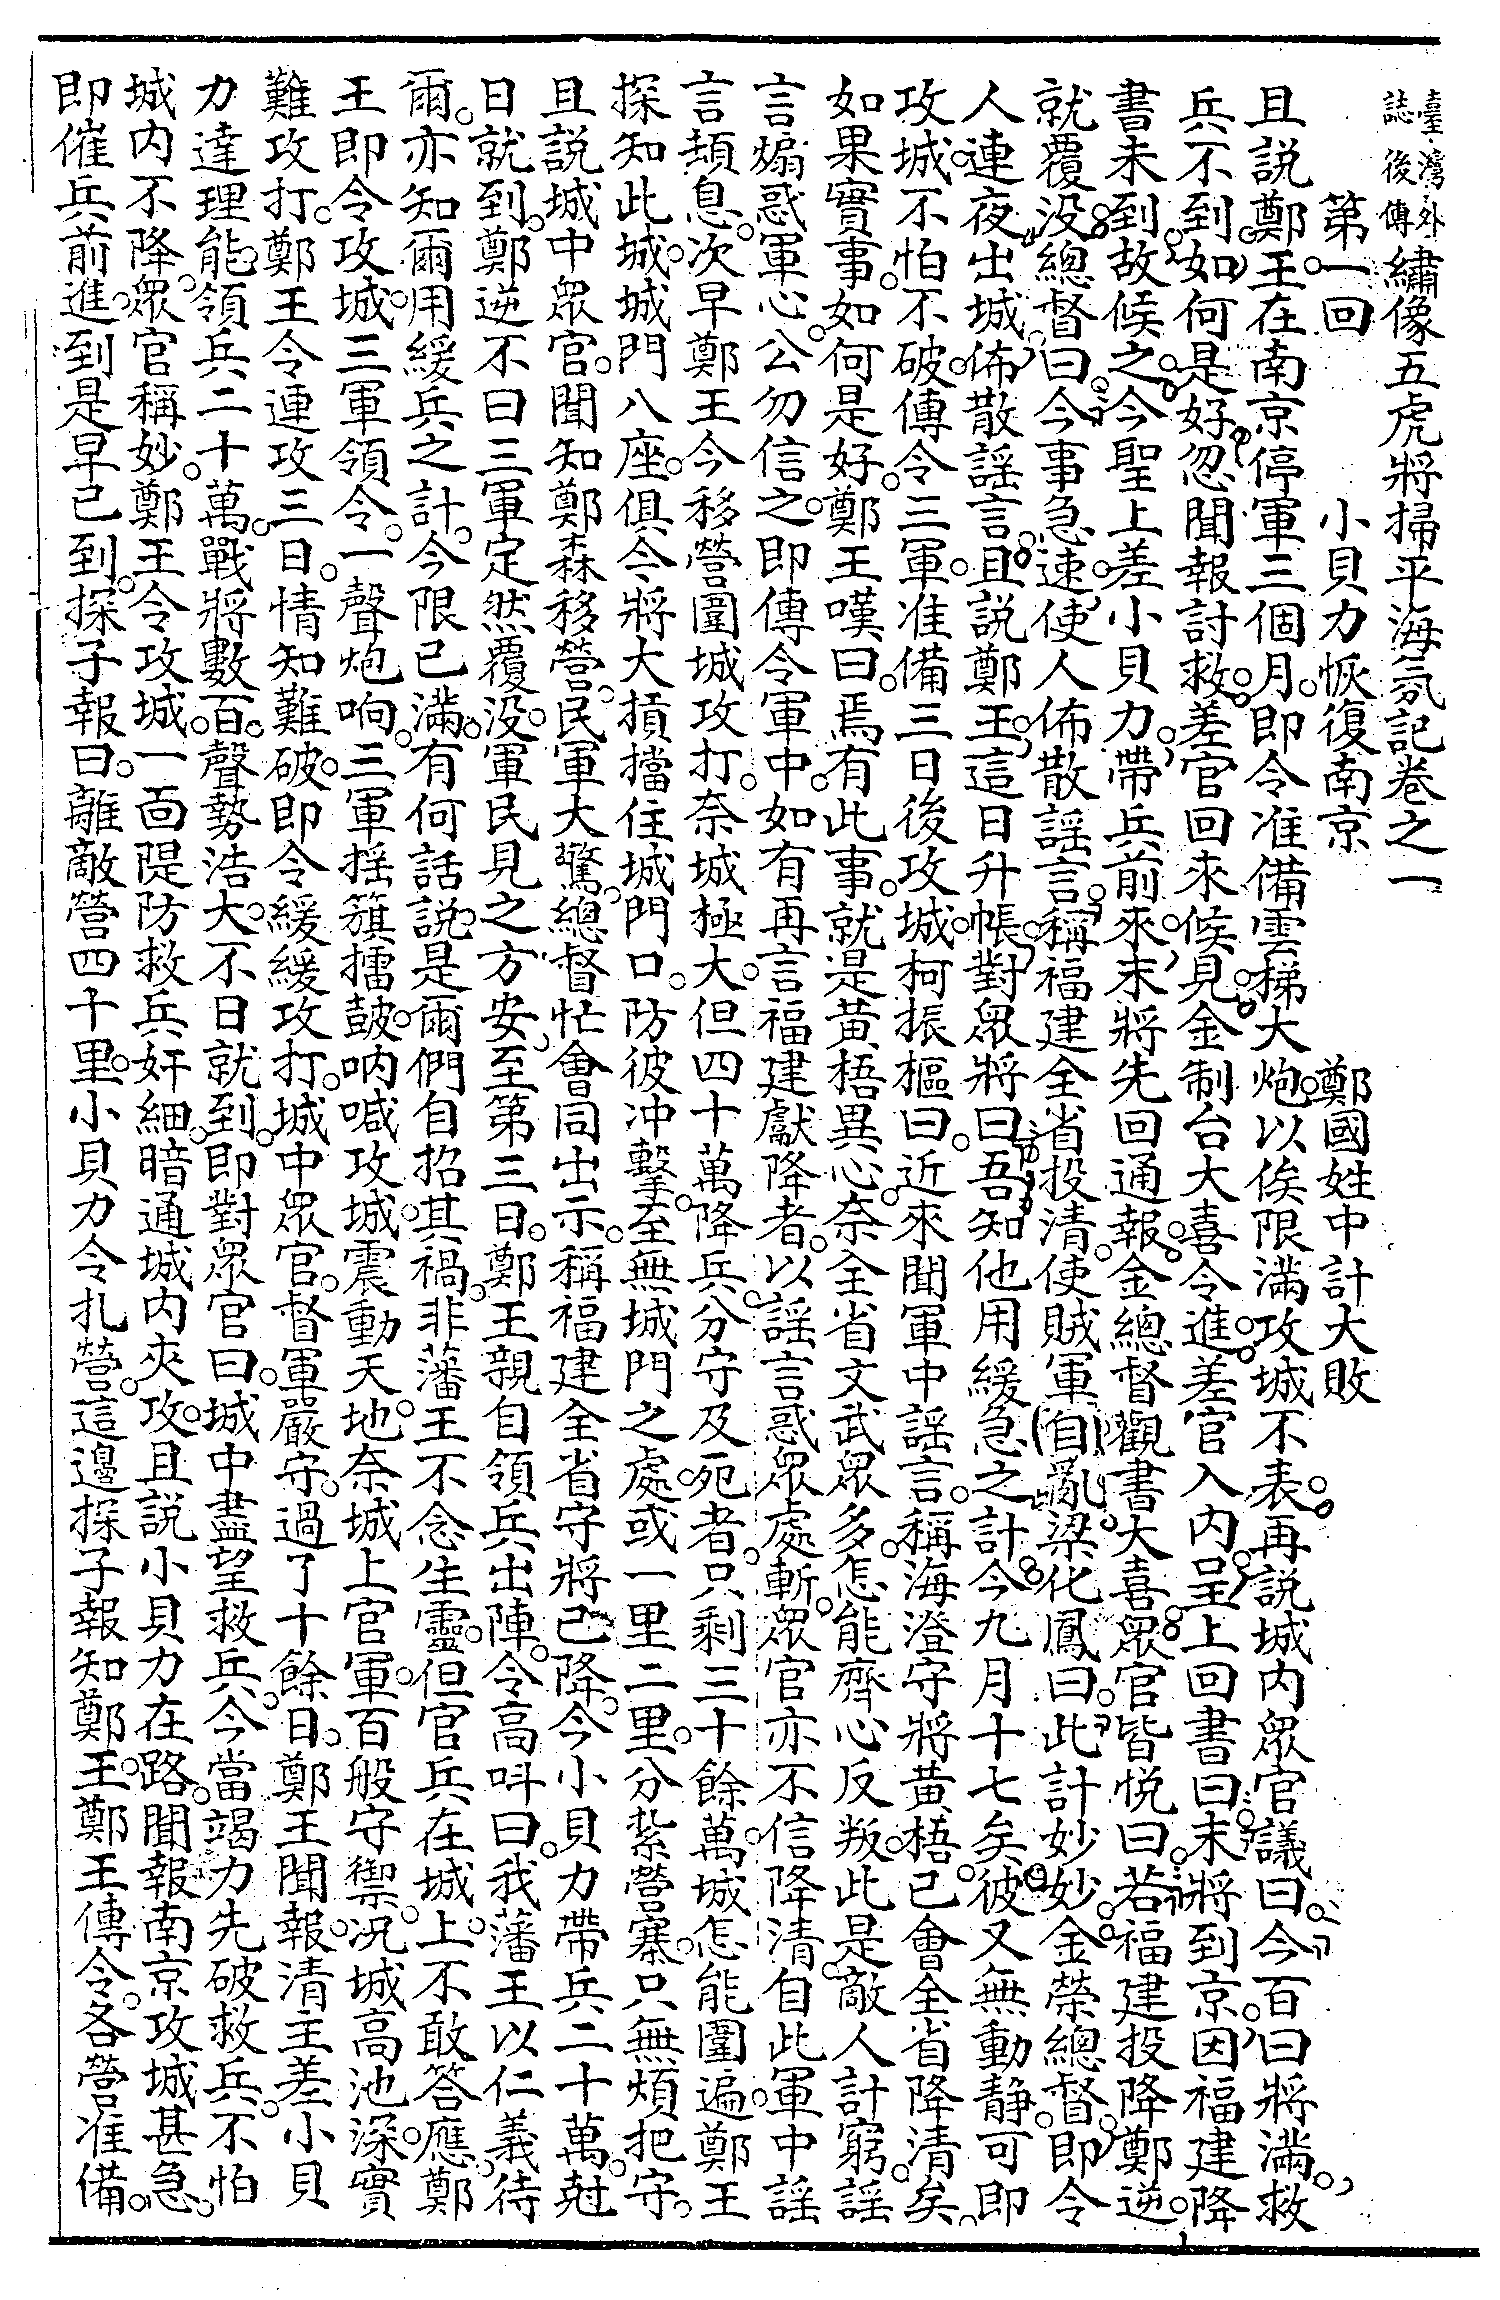 臺灣外誌後傳繡像五虎將掃平海氛記卷之一
第一回　小貝力恢復南京　鄭國姓中計大敗
且說鄭王在南京停軍三個月。即令准備雲梯大炮。以俟限滿攻城不表。再說城內眾官議曰。今百日將滿。救
兵不到。如何是好。忽聞報討救。差官回來候見。金制台大喜令進。差官入內。呈上回書曰。末將到京。因福建降
書未到。故候之。今聖上差小貝力。帶兵前來。末將先回通報。金總督觀書大喜。眾官皆悅曰。若福建投降。鄭逆
就覆没。總督曰。今事急。速使人佈散謡言。稱福建全省投清。使賊軍自亂。梁化鳳曰。此計妙妙。金榮總督。即令
人連夜出城。佈散謡言。且說鄭王。這日升帳。對眾將曰。吾知他用緩急之計。今九月十七矣。彼又無動静。可即
攻城。不怕不破。傳令三軍。准備三日後攻城。柯振樞曰。近來聞軍中謡言。稱海澄守將黄梧。已會全省降清矣。
如果實事。如何是好。鄭王嘆曰。焉有此事。就是黄梧異心。奈全省文武眾多。怎能齊心反叛。此是敵人計窮。謡
言煽惑軍心。公勿信之。即傳令軍中。如有再言福建獻降者。以謡言惑眾處斬。眾官亦不信降清。自此軍中謡
言頡息。次早鄭王令移營圍城攻打。奈城極大。但四十萬降兵。分守及死者。只剩三十餘萬。城怎能圍遍。鄭王
探知此城。城門八座。俱令將大損擋住城門口。防彼冲擊。至無城門之處。或一里二里。分紮營寨。只無煩把守。
且說城中眾官。聞知鄭森移營。民軍大驚。總督忙會同出示。稱福建全省守將已降。今小貝力帶兵二十萬。尅
日就到。鄭逆不日三軍定然覆没。軍民見之方安。至第三日。鄭王親自領兵出陣。令高呌曰。我藩王以仁義待
爾。亦知爾用緩兵之計。今限已滿。有何話說。是爾們自招其禍。非藩王不念生靈。但官兵在城上。不敢答應。鄭
王即令攻城。三軍領令。一聲炮响。三軍摇籏擂皷。吶喊攻城。震動天地。奈城上官軍。百般守禦。况城高池深。實
難攻打。鄭王令連攻三日。情知難破。即令緩緩攻打。城中眾官。督軍嚴守。過了十餘日。鄭王聞報。清主差小貝
力達理能。領兵二十萬。戰將數百。聲勢浩大。不日就到。即對眾官曰。城中盡望救兵。今當竭力先破救兵。不怕
城內不降。眾官稱妙。鄭王令攻城。一面隄防救兵奸細。暗通城內夾攻。且說小貝力在路。聞報南京攻城甚急。
即催兵前進。到是早已到。探子報曰。離敵營四十里。小貝力令扎營。這邊探子報知鄭王。鄭王傳令。各營准備。